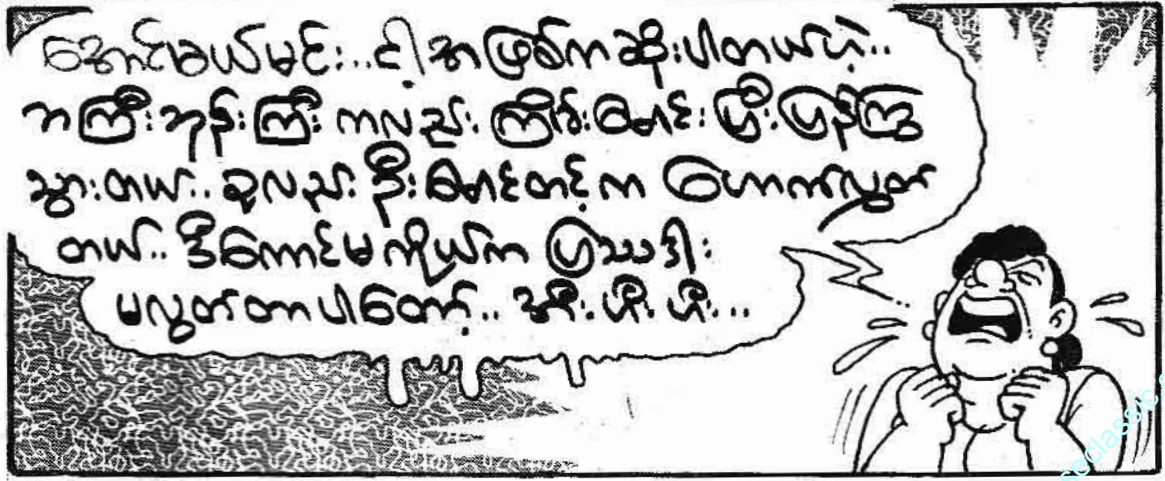 အောင်မယ်မင်း.. ငါ့အဖြစ်ကဆိုးပါတယ်ဟဲ့..
အကြီးအုန်းကြီး ကလည်း ကြိမ်းမောင်းပြီးပြန်ကြွ
သွားတယ်.. ခုလည်း ဦးမောင်တင့်က ဟောက်လွှတ်
တယ်.. ဒီကောင်မကိုယ်က ပြဿဒါး
မလွတ်တာပါတော့်.. အီး.ဟီး.ဟီး...